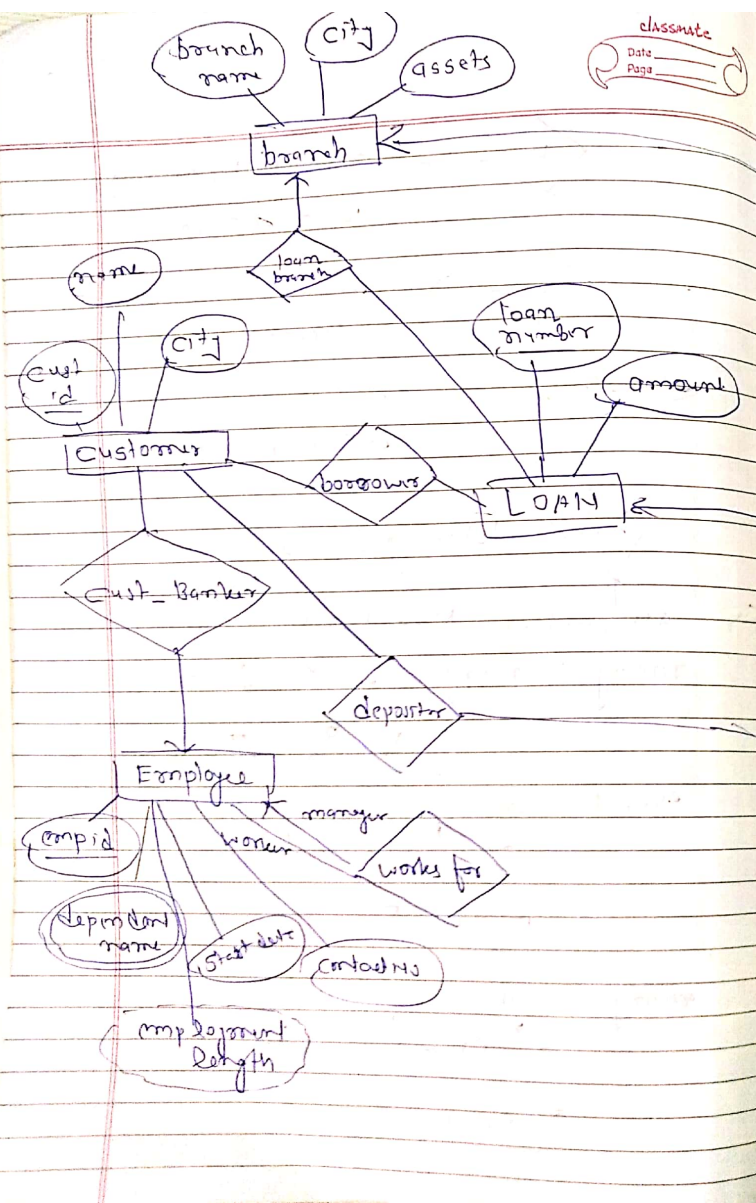 classmate
Date
Page
branch
name
city
assets
branch
loan
branch
name
city
cust
id
loan
number
amount
Customer
borrower
LOAN
Cust_Banker
depositor
Employee
manager
worker
works for
emp id
dependant
name
start date
contact No
employment
length